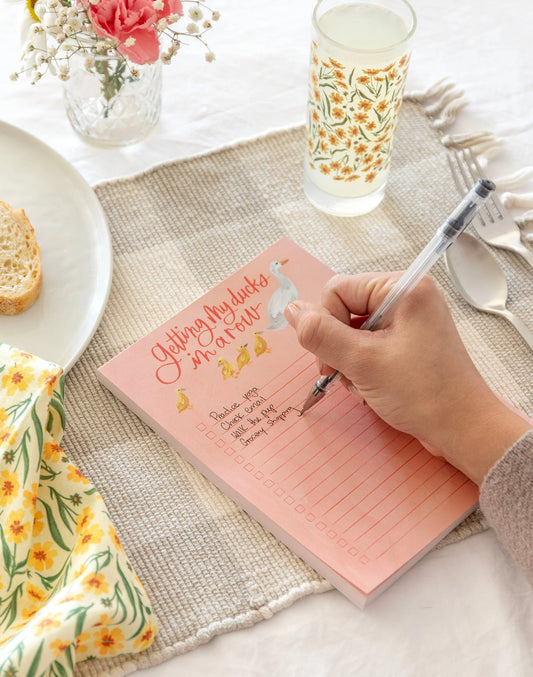 Getting My ducks
in a row
Practice yoga
Check email
Walk the pup
Grocery shopping